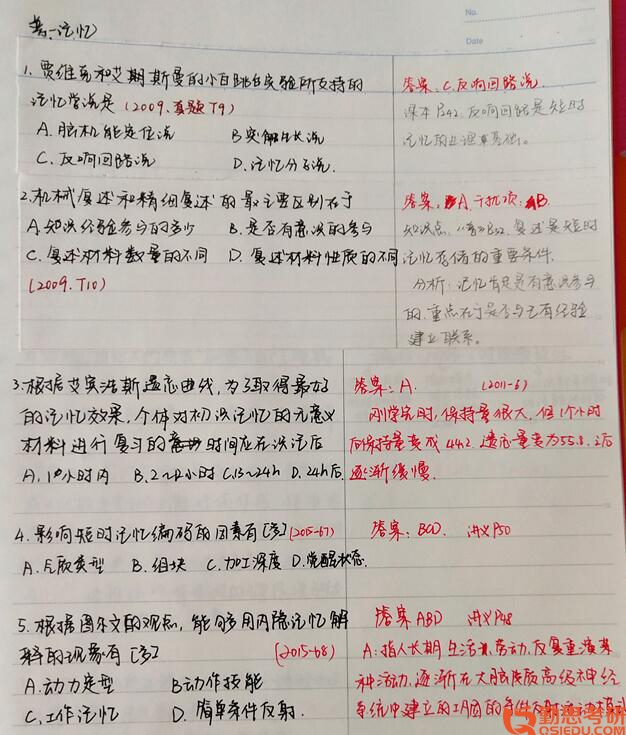 No.
Date
普-记忆
1. 贾维克和艾斯曼的小白鼠跳台实验所支持的
记忆学说是 (2009.真题T9)
A. 脑机能定位说 B 突触生长说
C. 反响回路说 D. 记忆分子说.
答案: C.反响回路说.
课本P342. 反响回路是短时
记忆的生理基础。
2.机械复述和精细复述的最主要区别在于
A.知识经验参与的多少 B. 是否有意识的参与
C. 复述材料数量的不同 D. 复述材料性质的不同
(2009.T10)
答案: A. 干扰项: B.
复述是短时
记忆存储的重要条件.
分析: 记忆肯定是有意识参与
的.重点在于是否与已有经验
建立联系。
3.根据艾宾浩斯遗忘曲线,为了取得最好
的记忆效果,个体对初次记忆的无意义
材料进行复习的时间应在识记后
A. 1个小时内 B.2~12小时 C.13~24h D.24h后.
答案: A. (2011-6)
刚学完时,保持量很大,但1个小时
后保持量变成44.2.遗忘量变为55.8.之后
逐渐缓慢.
4.影响短时记忆编码的因素有[多](2015-67)
A. 皮质类型 B. 组块 C.加工深度 D.觉醒状态.
答案: BCD. 讲义P50
5.根据图尔文的观点,能够用内隐记忆解
释的现象有[多] (2015-68)
A.动力定型 B动作技能
C.工作记忆 D. 简单条件反射.
答案ABD 讲义P48
A:指人长期生活、劳动、反复重演某
种活动,逐渐在大脑皮质高级神经
系统中建立的巩固的条件反射活动模式
勤思考研
QSIEDU.COM